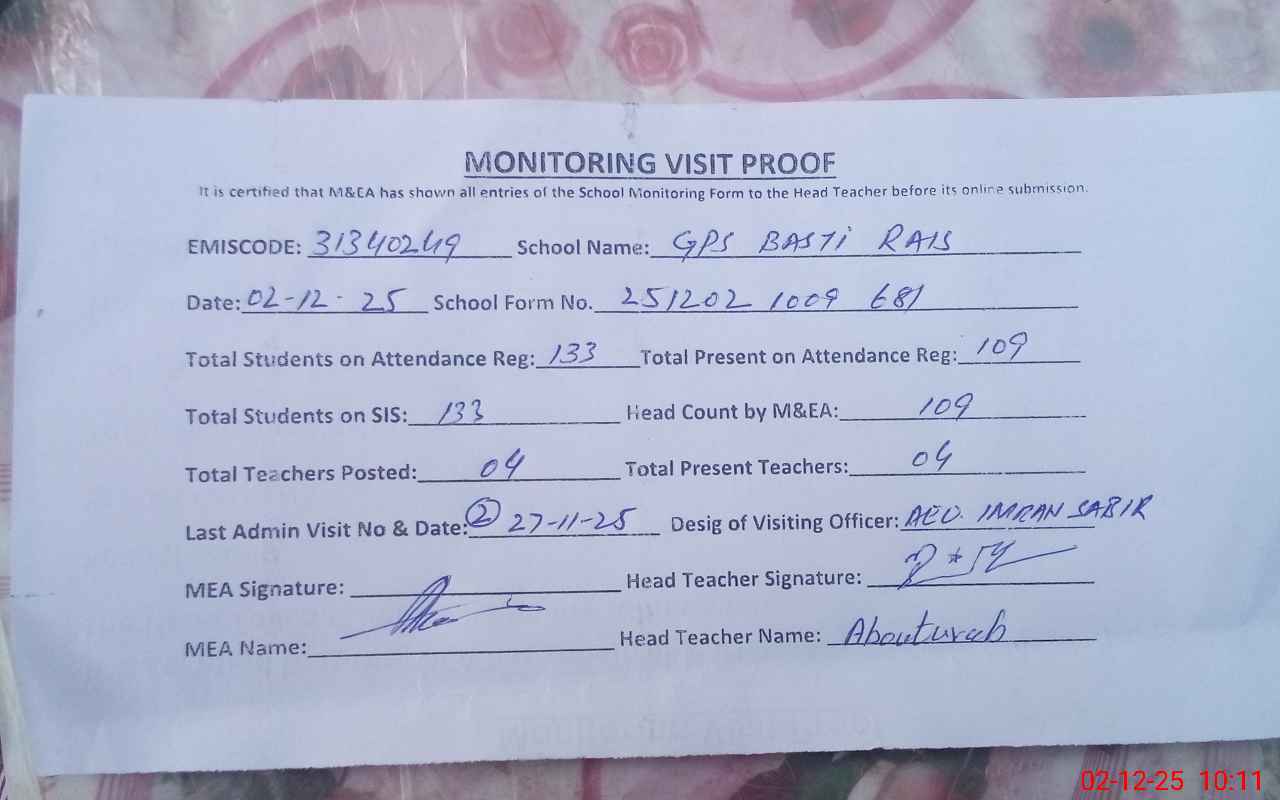 MONITORING VISIT PROOF
It is certified that M&EA has shown all entries of the School Monitoring Form to the Head Teacher before its online submission.
EMISCODE: 31340249 School Name: GPS BASTI RAIS
Date: 02-12-25 School Form No. 251202 1009 681
Total Students on Attendance Reg: 133 Total Present on Attendance Reg: 109
Total Students on SIS: 133 Head Count by M&EA: 109
Total Teachers Posted: 04 Total Present Teachers: 04
Last Admin Visit No & Date: 2 27-11-25 Desig of Visiting Officer: AEO. IMRAN SABIR
MEA Signature: Head Teacher Signature:
MEA Name: Head Teacher Name: Abouturab
02-12-25 10:11